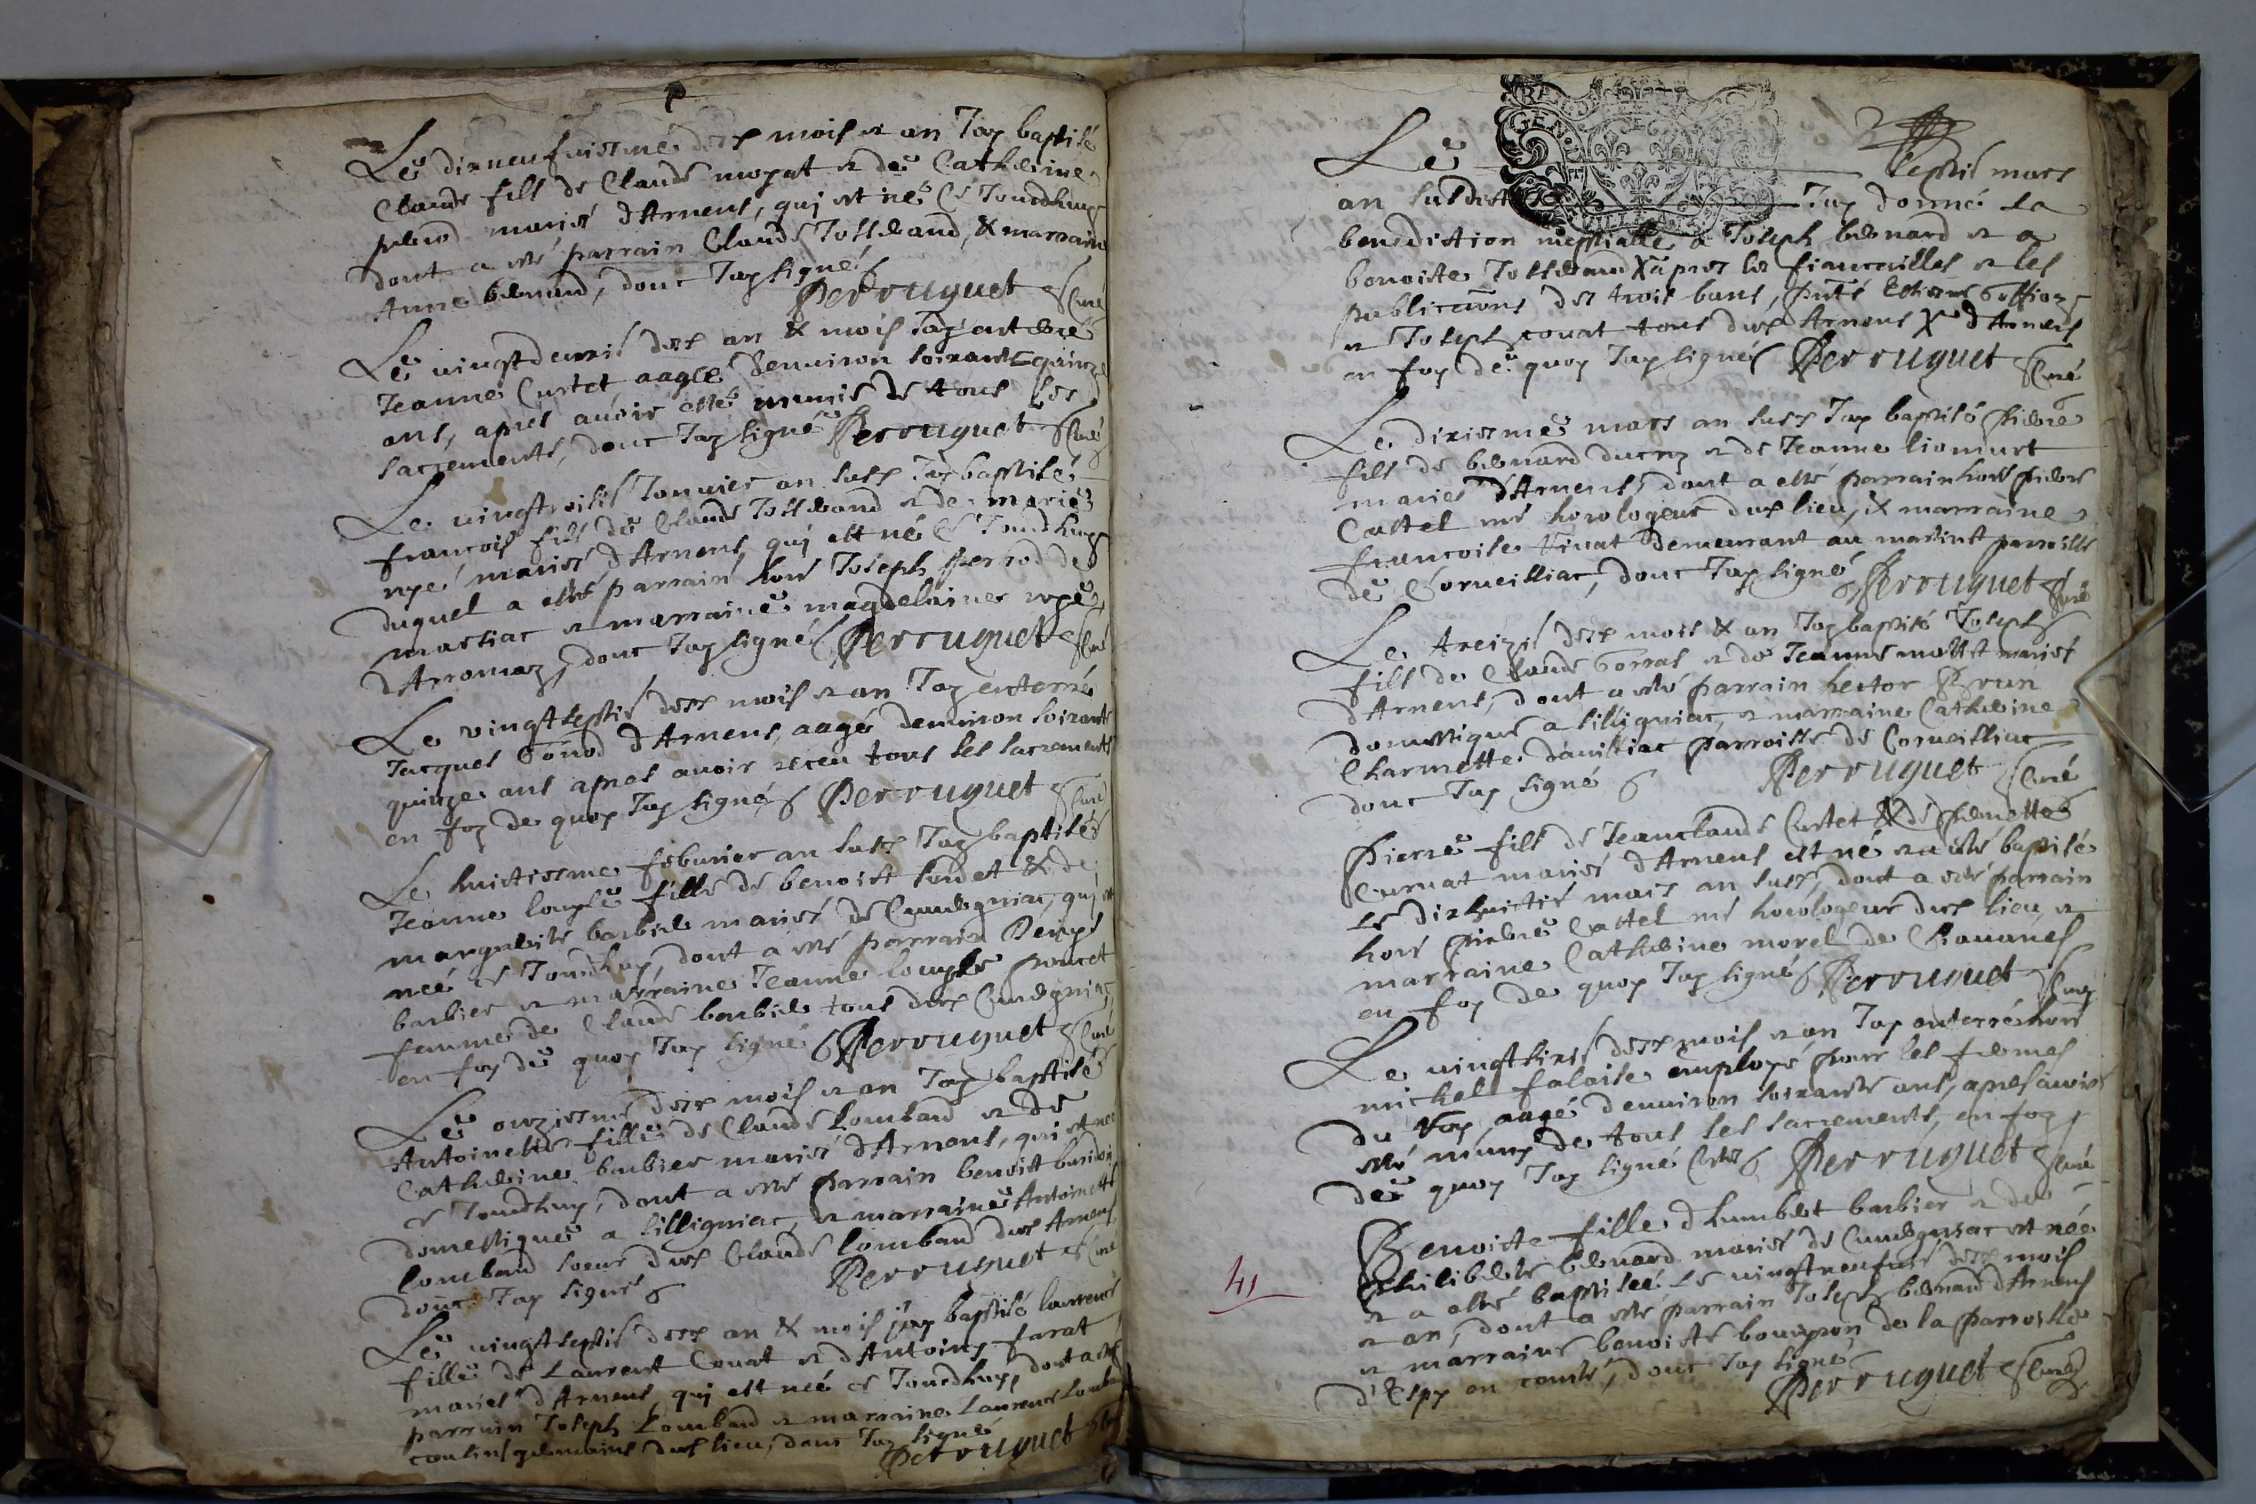 Le dixneufviesme desd mois et an Jay baptisé
Claude fils de Claude moyat et de Catherine
mariés d'Arnens, qui est né ce Jourdhuy
dont a esté parrain Claude Jossserand, & marraine
Anne bernard, donc Jay signé
Perruquet Curé
Le vingtdeuxie desd an & mois Jay enterré
Jeanne Curtet aagée denviron soixante quinze
ans, apres avoir esté munie de tous les
sacrements, donc Jay signé Perruquet Curé
Le vingtroisie Janvier an susd Jay baptisé
francois fils de Claude Jossserand et de marie
mariés d'Arnens, qui est né ce Jourdhuy
duquel a esté parrain hone Joseph perrod de
marsiac et marraine magdelaine
d'Arromaz, donc Jay signé Perruquet Curé
Le vingtseptie desd mois et an Jay enterré
Jacques Gonod d'Arnens, aagé denviron soixante
quinze ans apres avoir receu tous les sacrements
en foy de quoy Jay signé Perruquet Curé
Le huictiesme febvrier an susd Jay baptisé
Jeanne fille de benoist & de
marguerite barbier mariés de
née ce Jourdhuy, dont a esté parrain Denys
barbier et marraine Jeanne poncet
femme de Claude barbier tous dud
en foy de quoy Jay signé Perruquet Curé
Le onziesme desd mois et an Jay baptisé
Antoinette fille de Claude Lombard et de
Catherine barbier mariés d'Arnens, qui est née
ce Jourdhuy, dont a esté parrain benoist
domestique a silligniac, et marraine Antoinette
lombard soeur dud Claude lombard dud Arnens
donc Jay signé Perruquet Curé
Le vingtseptie desd an & mois jay baptisé laurence
fille de Laurent Couat et d'Antoine farat
mariés d'Arnens, qui est née ce Jourdhuy, dont a esté
parrain Joseph Lombard et marraine Laurence
cousins germains dud lieu, donc Jay signé
Perruquet
Le septie mars
an susdit Jay donné la
benediction nuptialle a Joseph bernard et a
benoiste Jossserand apres les fiancailles et les
publications des trois bans, Estienne
et Joseph couat tous dud Arnens d'Arnens
en foy de quoy Jay signé Perruquet Curé
Le dixiesme mars an susd Jay baptisé Pierre
fils de bernard ducruy et de Jeanne
mariés d'Arnens, dont a esté parrain hone Pierre
Cattel me horologeur dud lieu, & marraine
francoise Vivat demeurant au parroisse
de Corveilliac, donc Jay signé Perruquet Curé
Le treizie desd mois & an Jay baptisé Joseph
fils de Claude Gorras et de Jeanne mollet mariés
d'Arnens, dont a esté parrain hector Brun
domestique a silligniac, et marraine Catherine
Charmette parroisse de Corveilliac
donc Jay signé Perruquet Curé
Pierre fils de Jeanclaude Curtet & de pernette
Curnat mariés d'Arnens est né et a esté baptisé
le dixhuictie mars an susd, dont a esté parrain
hone Pierre Cattel me horologeur dud lieu, et
marraine Catherine morel de Chavanes
en foy de quoy Jay signé Perruquet Curé
Le vingtsixie desd mois et an Jay enterré hone
michel falaise employé pour les fermes
du Roy, aagé denviron soixante ans, apres avoir
esté muny de tous les sacrements, en foy
de quoy Jay signé Perruquet Curé
Benoiste fille d'humbert barbier et de
philiberte bernard mariés de est née
et a esté baptisée le vingtneufvie desd mois
et an, dont a esté parrain Joseph bernard d'Arnens
et marraine benoiste de la parroisse
d'Espy en comté, donc Jay signé
Perruquet Curé
41